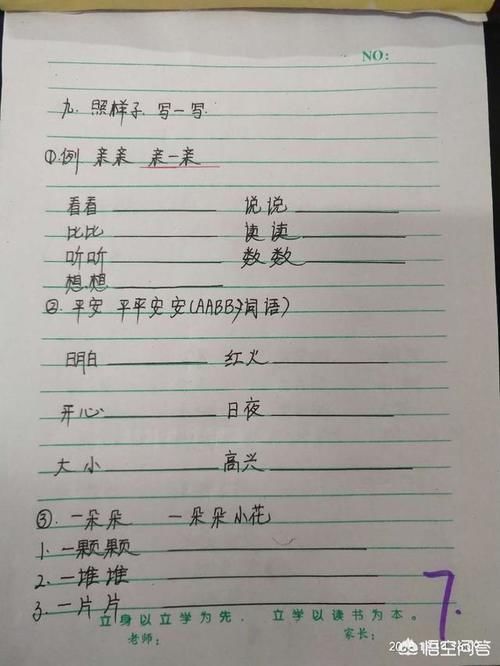 NO:
九. 照样子. 写一写.
①.例 亲亲 亲一亲
看看 说说
比比 读读
听听 数数
想想
②. 平安 平平安安(AABB词语)
明白 红火
开心 日夜
大小 高兴
③. 一朵朵 一朵朵小花
1. 一颗颗
2. 一堆堆
3. 一片片
7.
立身以立学为先， 立学以读书为本。
老师： 家长：
悟空问答